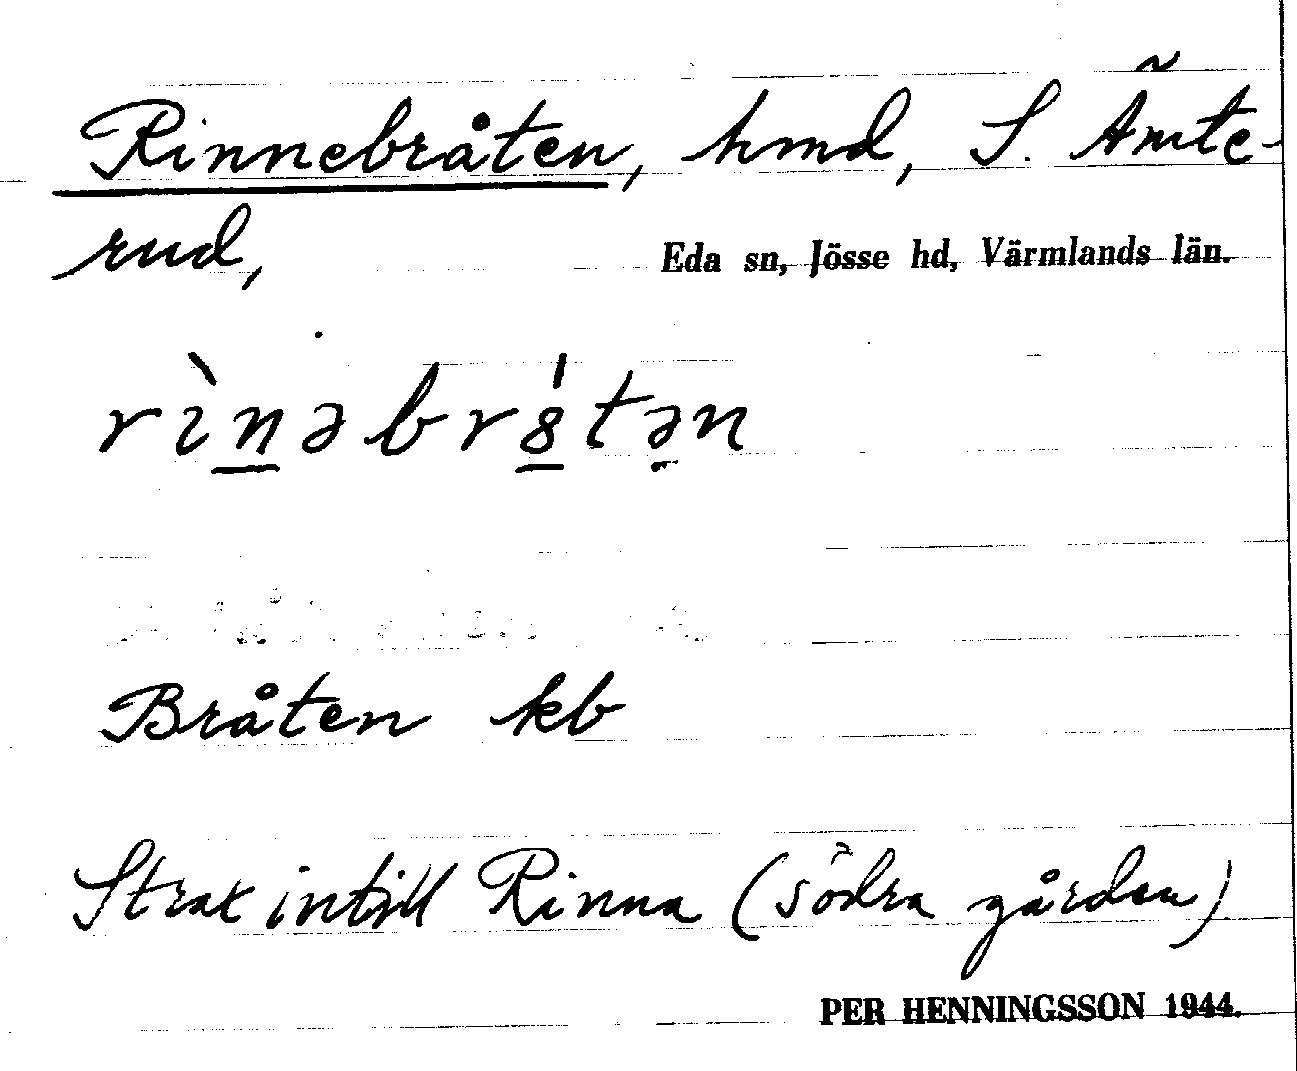 Rinnebråten, hmd, S. Ämte-
rud, Eda sn, Jösse hd, Värmlands län.
rìnəbr8́tən
Bråten kb
Strax intill Rinna (södra gården)
PER HENNINGSSON 1944.